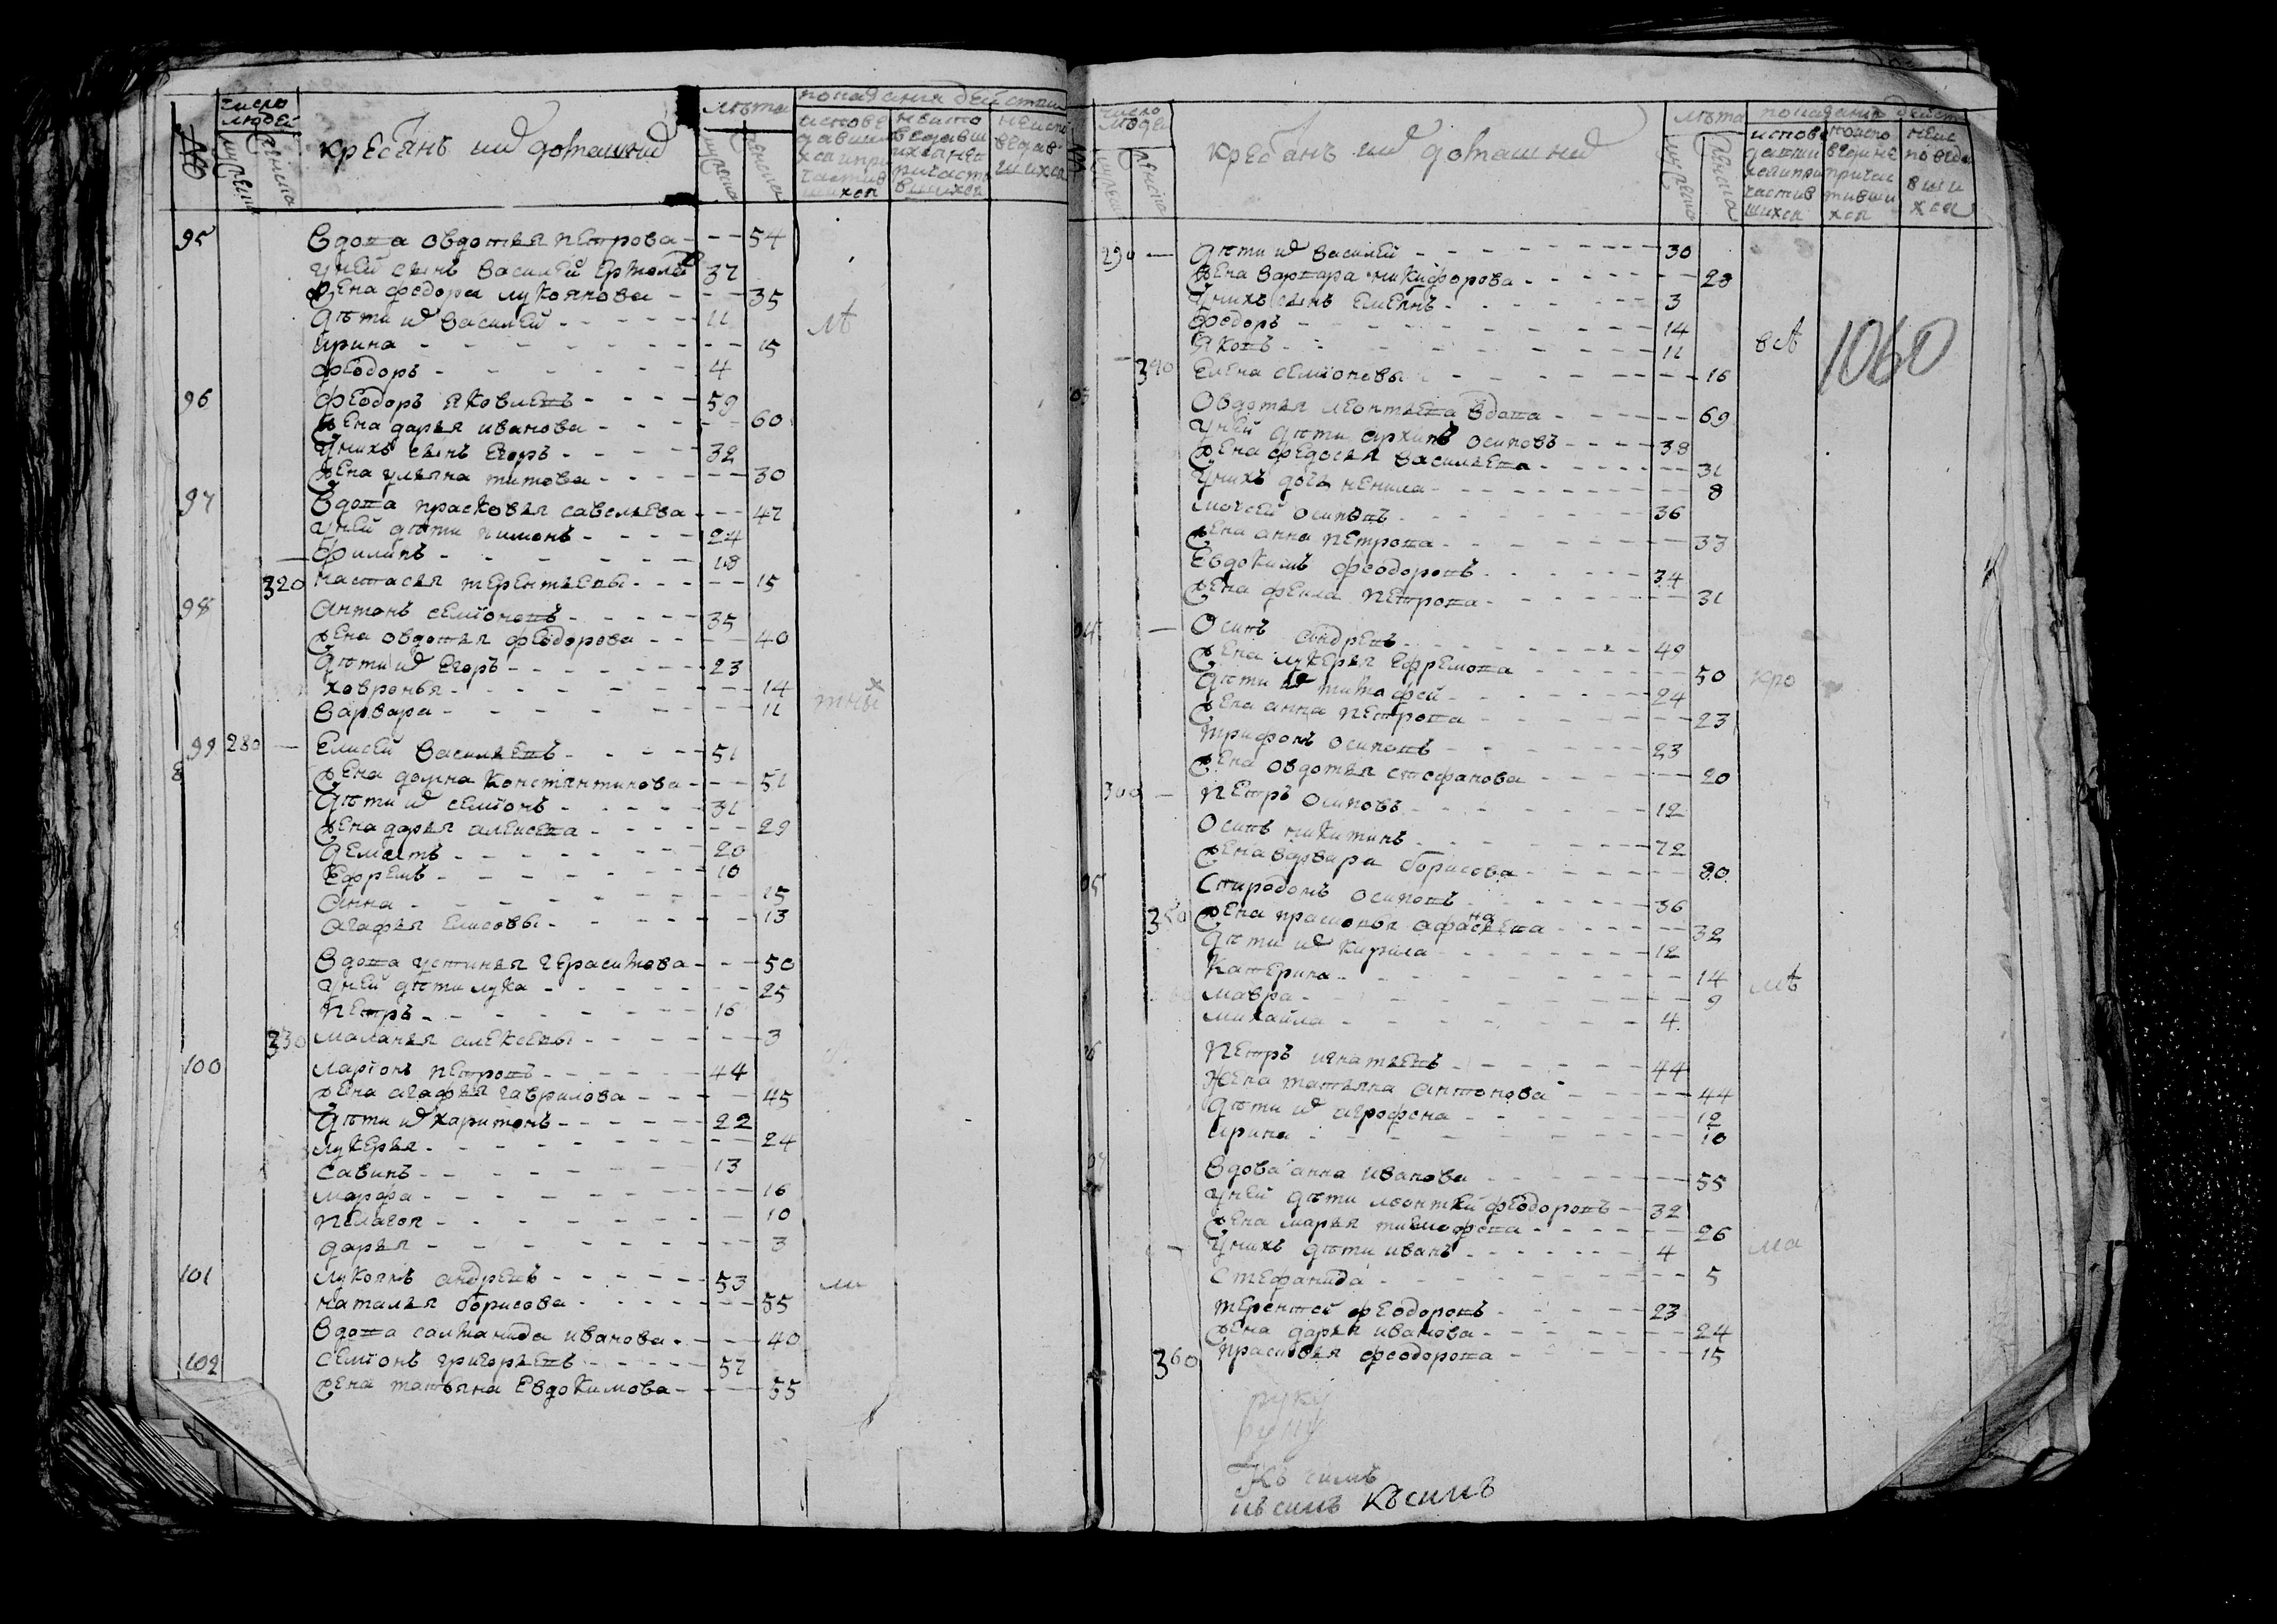 число людей
мужеска
женска
крестьянъ и их домашних
лѣта
мужеска
женска
показания действия
исповедавшихся и причастившихся
неисповедавшихся
95 вдова овдотья петрова - - - 54
у ней сынъ василей ермолаев 37
жена федора лукоянова - - - 35
дѣти их василей - - - 11
ирина - - - 15
феодоръ - - - 4
96 феодоръ яковлевъ - - - 59
жена дарья иванова - - - 60
у нихъ сынъ егоръ - - - 32
жена ульяна титова - - - 30
97 вдова прасковья савельева - - - 47
у ней дѣти пимонъ - - - 24
филипъ - - - 18
320 настасья терентьевы - - - 15
98 антонъ семионовъ - - - 35
жена овдотья феодорова - - - 40
дѣти их егоръ - - - 23
ховронья - - - 14
варвара - - - 11
99 280 елисей васильевъ - - - 51
жена домна константинова - - - 51
дѣти их семионъ - - - 31
жена дарья алексева - - - 29
дементъ - - - 20
ефремъ - - - 10
анна - - - 15
агафья елисовы - - - 13
вдова устинья герасимова - - - 50
у ней дѣти лука - - - 25
петръ - - - 16
330 маланья алексевы - - - 3
100 ларионъ петровъ - - - 44
жена агафья гаврилова - - - 45
дѣти их харитонъ - - - 22
лукерья - - - 24
савинъ - - - 13
марфа - - - 16
пелагея - - - 10
дарья - - - 3
101 лукоянъ андревъ - - - 53
наталья борисова - - - 55
вдова саломанида иванова - - - 40
102 семионъ григорьевъ - - - 57
жена татьяна евдокимова - - - 55
число людей
крестьянъ их домашних
лѣта
мужеска
женска
показания действ
290 дѣти их василей - - - 30
жена варвара никифорова - - - 28
у нихъ сынъ емельянъ - - - 3
федоръ - - - 14
яковъ - - - 11
1060
340 елена семионовы - - - 16
03 овдотья леонтьева вдова - - - 69
у ней дѣти архипъ осиповъ - - - 38
жена федосья васильева - - - 31
у нихъ дочь ненила - - - 8
моисей осиповъ - - - 36
жена анна петрова - - - 33
евдокимъ феодоровъ - - - 34
жена фекла петрова - - - 31
04 осипъ андревъ - - - 49
жена лукерья ефремова - - - 50
дѣти их тимофей - - - 24
жена анна петрова - - - 23
трифонъ осиповъ - - - 23
жена овдотья стефанова - - - 20
300 петръ осиповъ - - - 12
осипъ никитинъ - - - 72
жена варвара борисова - - - 80
05 спиродонъ осиповъ - - - 36
350 жена прасковья афанасьева - - - 32
дѣти их кирила - - - 12
катерина - - - 14
мавра - - - 9
михайла - - - 4
06 петръ игнатьевъ - - - 44
жена татьяна антонова - - - 44
дѣти их агрофена - - - 12
ирина - - - 10
07 вдова анна иванова - - - 55
у ней дѣти леонтей феодоровъ - - 32
жена марья тимофева - - - 26
у нихъ дѣти иванъ - - - 4
стефанида - - - 5
терентей феодоровъ - - - 23
жена дарья иванова - - - 24
360 прасковья феодорова - - - 15
руку
руку
Къ симъ
къ симъ къ симъ